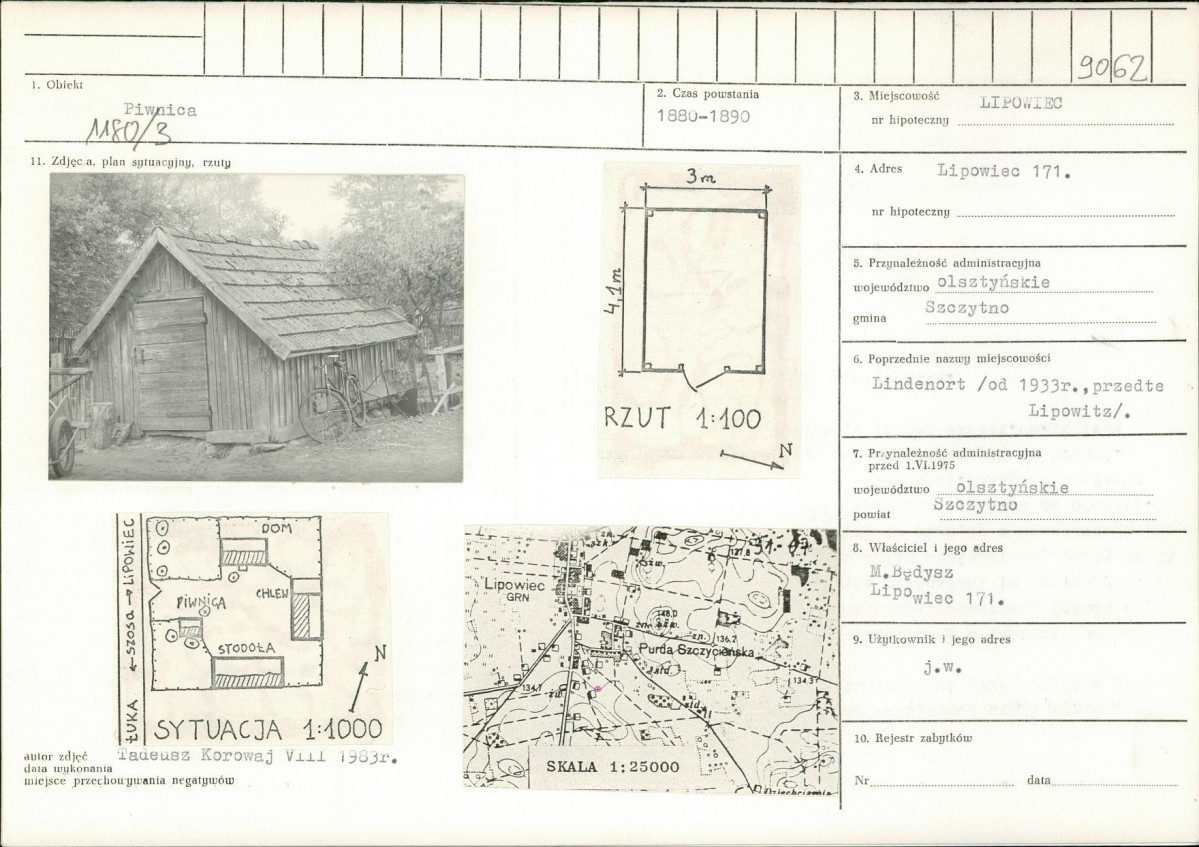 9062
1. Obiekt
Piwnica
1180/3
2. Czas powstania
1880-1890
3. Miejscowość LIPOWIEC
nr hipoteczny
11. Zdjęcia, plan sytuacyjny, rzuty
4. Adres Lipowiec 171.
nr hipoteczny
5. Przynależność administracyjna
województwo olsztyńskie
gmina Szczytno
6. Poprzednie nazwy miejscowości
Lindenort /od 1933r.,przedte
Lipowitz/.
7. Przynależność administracyjna
przed 1.VI.1975
województwo olsztyńskie
powiat Szczytno
8. Właściciel i jego adres
M.Będysz
Lipowiec 171.
9. Użytkownik i jego adres
j.w.
10. Rejestr zabytków
Nr data
3m
4,1m
RZUT 1:100
N
ŁUKA ← SZOSA → LIPOWIEC
DOM
CHLEW
PIWNICA
STODOŁA
N
SYTUACJA 1:1000
Lipowiec
GRN
148.0
136.2
Purda Szczycieńska
134.7
134.3
SKALA 1:25000
autor zdjęć Tadeusz Korowaj VIII 1983r.
data wykonania
miejsce przechowywania negatywów